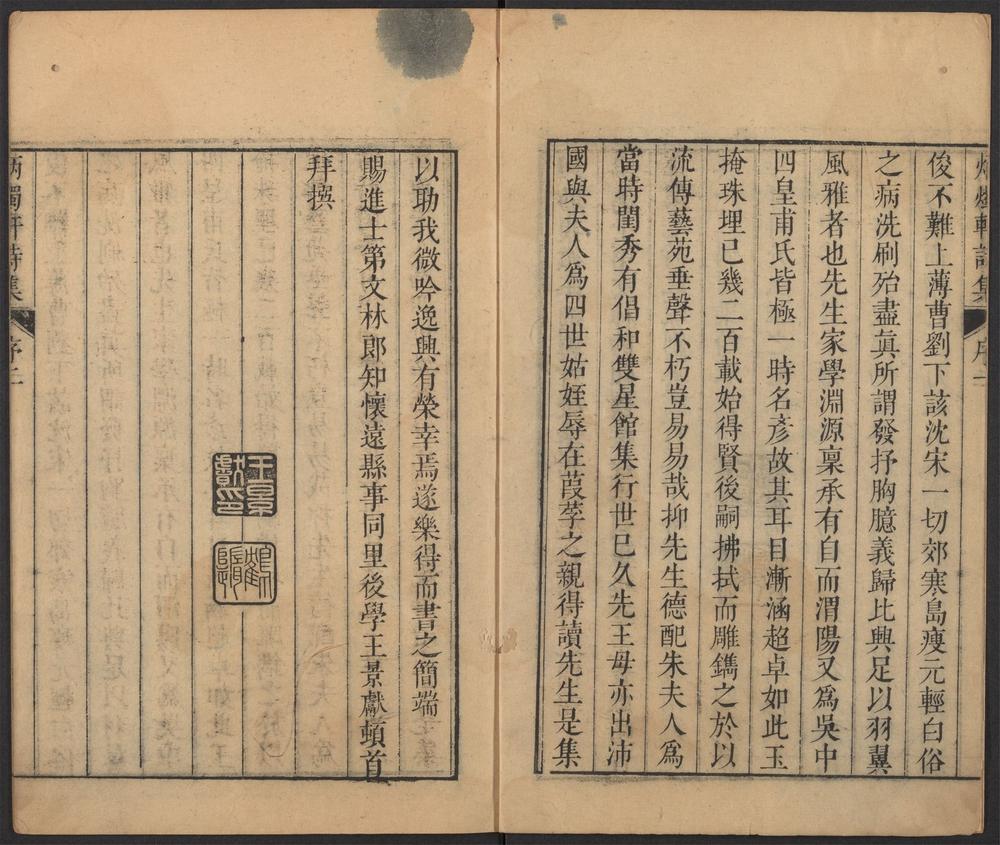 俊不難上薄曹劉下該沈宋一切郊寒島瘦元輕白俗
之病洗刷殆盡眞所謂發抒胸臆義歸比興足以羽翼
風雅者也先生家學淵源稟承有自而渭陽又爲吳中
四皇甫氏皆極一時名彥故其耳目漸涵超卓如此玉
掩珠埋已幾二百載始得賢後嗣拂拭而雕鐫之於以
流傳藝苑垂聲不朽豈易易哉抑先生德配朱夫人爲
當時閨秀有倡和雙星館集行世已久先王母亦出沛
國與夫人爲四世姑姪辱在葭莩之親得讀先生是集
以助我微吟逸興有榮幸焉遂樂得而書之簡端
賜進士第文林郎知懷遠縣事同里後學王景獻頓首
拜撰
王景獻印